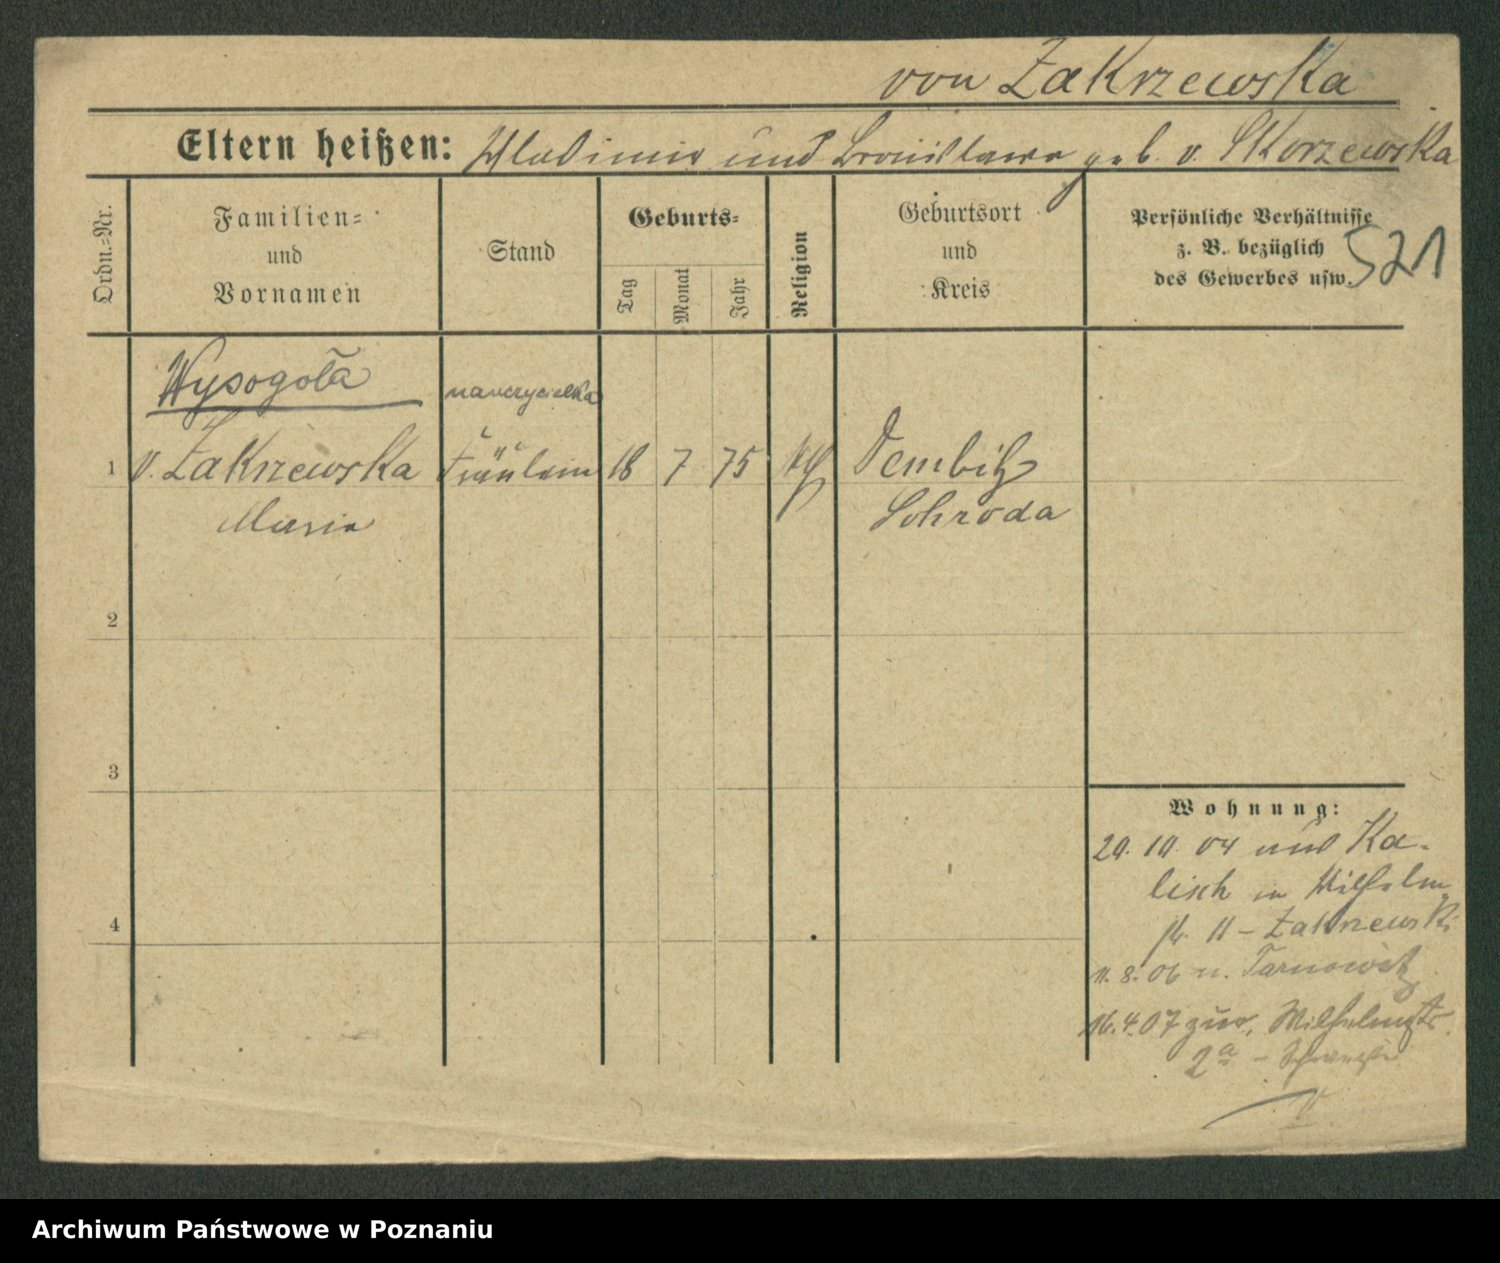 von Zakrzewska
Eltern heißen: Wladimir und Bronislawa geb. v. Skorzewska
Ordn.-Nr.
Familien-
und
Vornamen
Stand
Geburts-
Tag
Monat
Jahr
Religion
Geburtsort
und
Kreis
Persönliche Verhältnisse
z. B. bezüglich
des Gewerbes usw.
521
Wysogota
nauczycielka
1 v. Zakrzewska Fräulein 18 7 75 Dembitz
Maria Schroda
2
3
4
Wohnung:
04 aus Ka-
lisch in Wilhelm
11 - Zakrzewski
11. 8. 06 n. Tarnowitz
16. 4. 07 zur. Wilhelmstr.
2a -
Archiwum Państwowe w Poznaniu